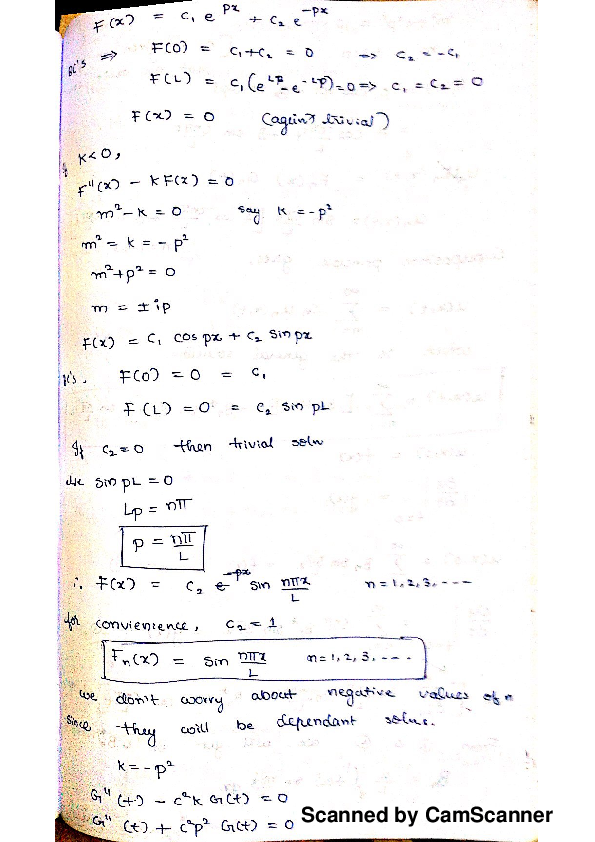 F(x) = c₁ e^{px} + c₂ e^{-px}
BC's ⇒ F(0) = c₁+c₂ = 0 ⇒ c₂ = -c₁
F(L) = c₁(e^{Lp} - e^{-Lp}) = 0 ⇒ c₁ = c₂ = 0
F(x) = 0 (again trivial)
K<0,
F''(x) - KF(x) = 0
m² - k = 0 say k = -p²
m² = k = -p²
m²+p² = 0
m = ± ip
F(x) = C₁ cos px + C₂ sin px
F(0) = 0 = C₁
F(L) = 0 = C₂ sin pL
If C₂ = 0 then trivial soln
sin pL = 0
Lp = nπ
p = nπ/L
∴ F(x) = C₂ e^{-px} sin nπx/L n = 1, 2, 3, ----
for convienience, C₂ = 1
Fₙ(x) = sin nπx/L n = 1, 2, 3, ----
we don't worry about negative values of n
since they will be dependant solns.
k = -p²
G''(t) - c²k G(t) = 0
G''(t) + c²p² G(t) = 0
Scanned by CamScanner